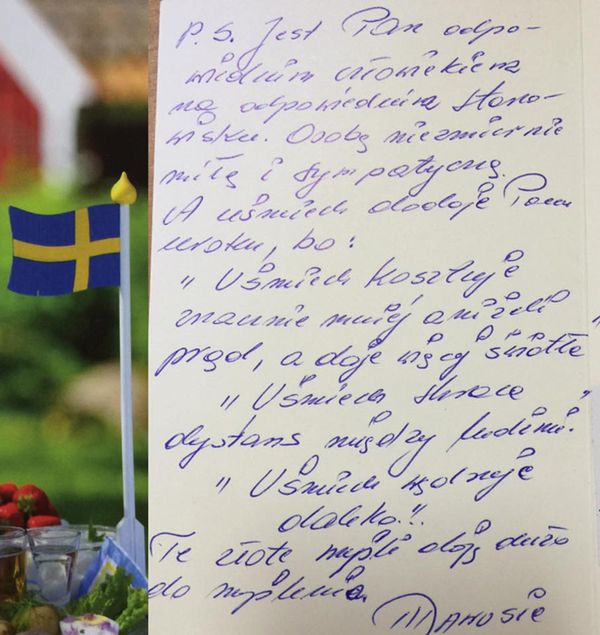 P.S. Jest Pan odpo-
wiednim człowiekiem
na odpowiednim stano-
wisku. Osobą niezmiernie
miłą i sympatyczną.
A uśmiech dodaje Panu
uroku, bo:
„Uśmiech kosztuje
znacznie mniej aniżeli
prąd, a daje więcej światła
„Uśmiech skraca
dystans między ludźmi."
„Uśmiech wędruje
daleko."
Te złote myśli dają dużo
do myślenia